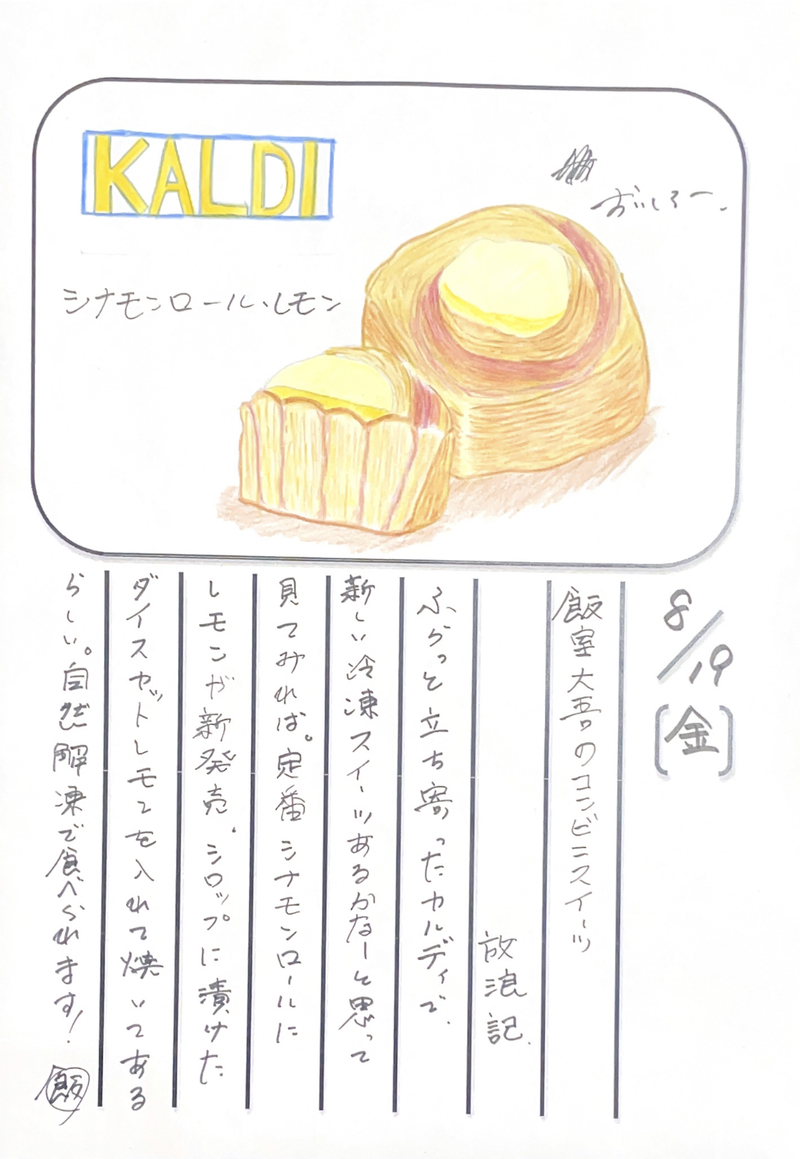 KALDI
おいしそー.
シナモンロール・レモン
8/19
[金]
飯室大吾のコンビニスイーツ
放浪記.
ふらっと立ち寄ったカルディで.
新しい冷凍スイーツあるかなーと思って
見てみれば。定番シナモンロールに
レモンが新発売。シロップに漬けた
ダイスカットレモンを入れて焼いてある
らしい。自然解凍で食べられます!
飯